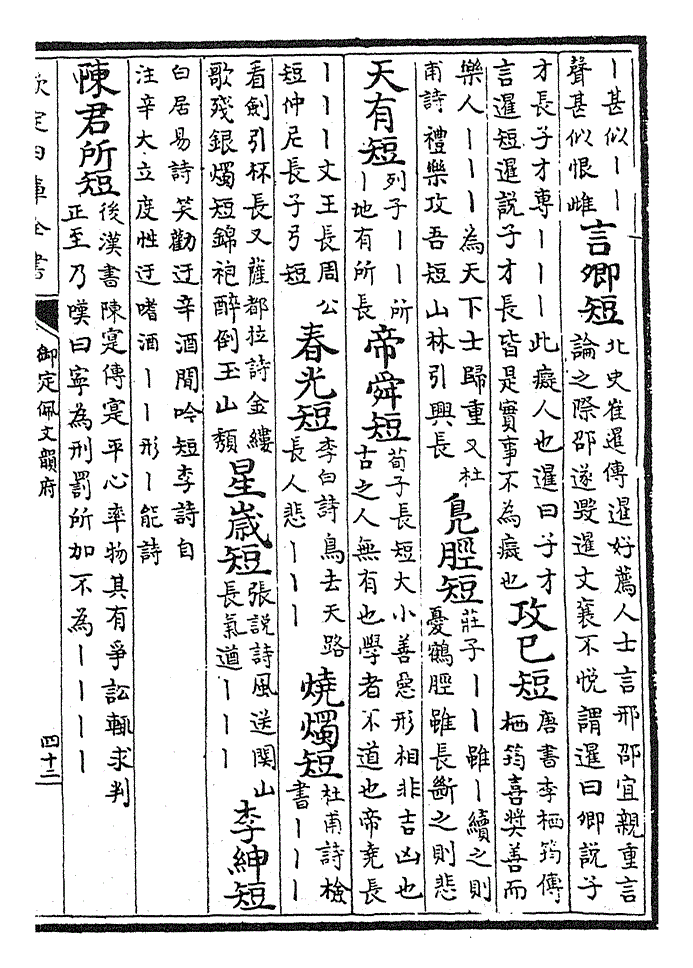 丨甚似丨丨
聲甚似恨雌
言卿短
北史崔暹傳暹好薦人士言邢邵宜親重言
論之際邵遂毀暹文襄不悦謂暹曰卿說子
才長子才專丨丨丨此癡人也暹曰子才
言暹短暹說子才長皆是實事不為癡也
攻已短
唐書李栖筠傳
栖筠喜奨善而
樂人丨丨丨為天下士歸重又杜
甫詩禮樂攻吾短山林引興長
鳧脛短
莊子丨丨雖丨續之則
憂鶴脛雖長斷之則悲
天有短
列子丨丨所
丨地有所長
帝舜短
荀子長短大小善惡形相非吉凶也
古之人無有也學者不道也帝堯長
丨丨丨文王長周公
短仲尼長子弓短
春光短
李白詩鳥去天路
長人悲丨丨丨
燒燭短
杜甫詩檢
書丨丨丨
看劍引杯長又薩都拉詩金縷
歌殘銀燭短錦袍醉倒玉山頽
星歲短
張說詩風送關山
長氣遒丨丨丨
李紳短
白居易詩笑勸迂辛酒閒吟短李詩自
注辛大立度性迂嗜酒丨丨形丨能詩
陳君所短
後漢書陳寔傳寔平心率物其有爭訟輒求判
正至乃嘆曰寧為刑罰所加不為丨丨丨丨
欽定四庫全書
御定佩文韻府
四十二